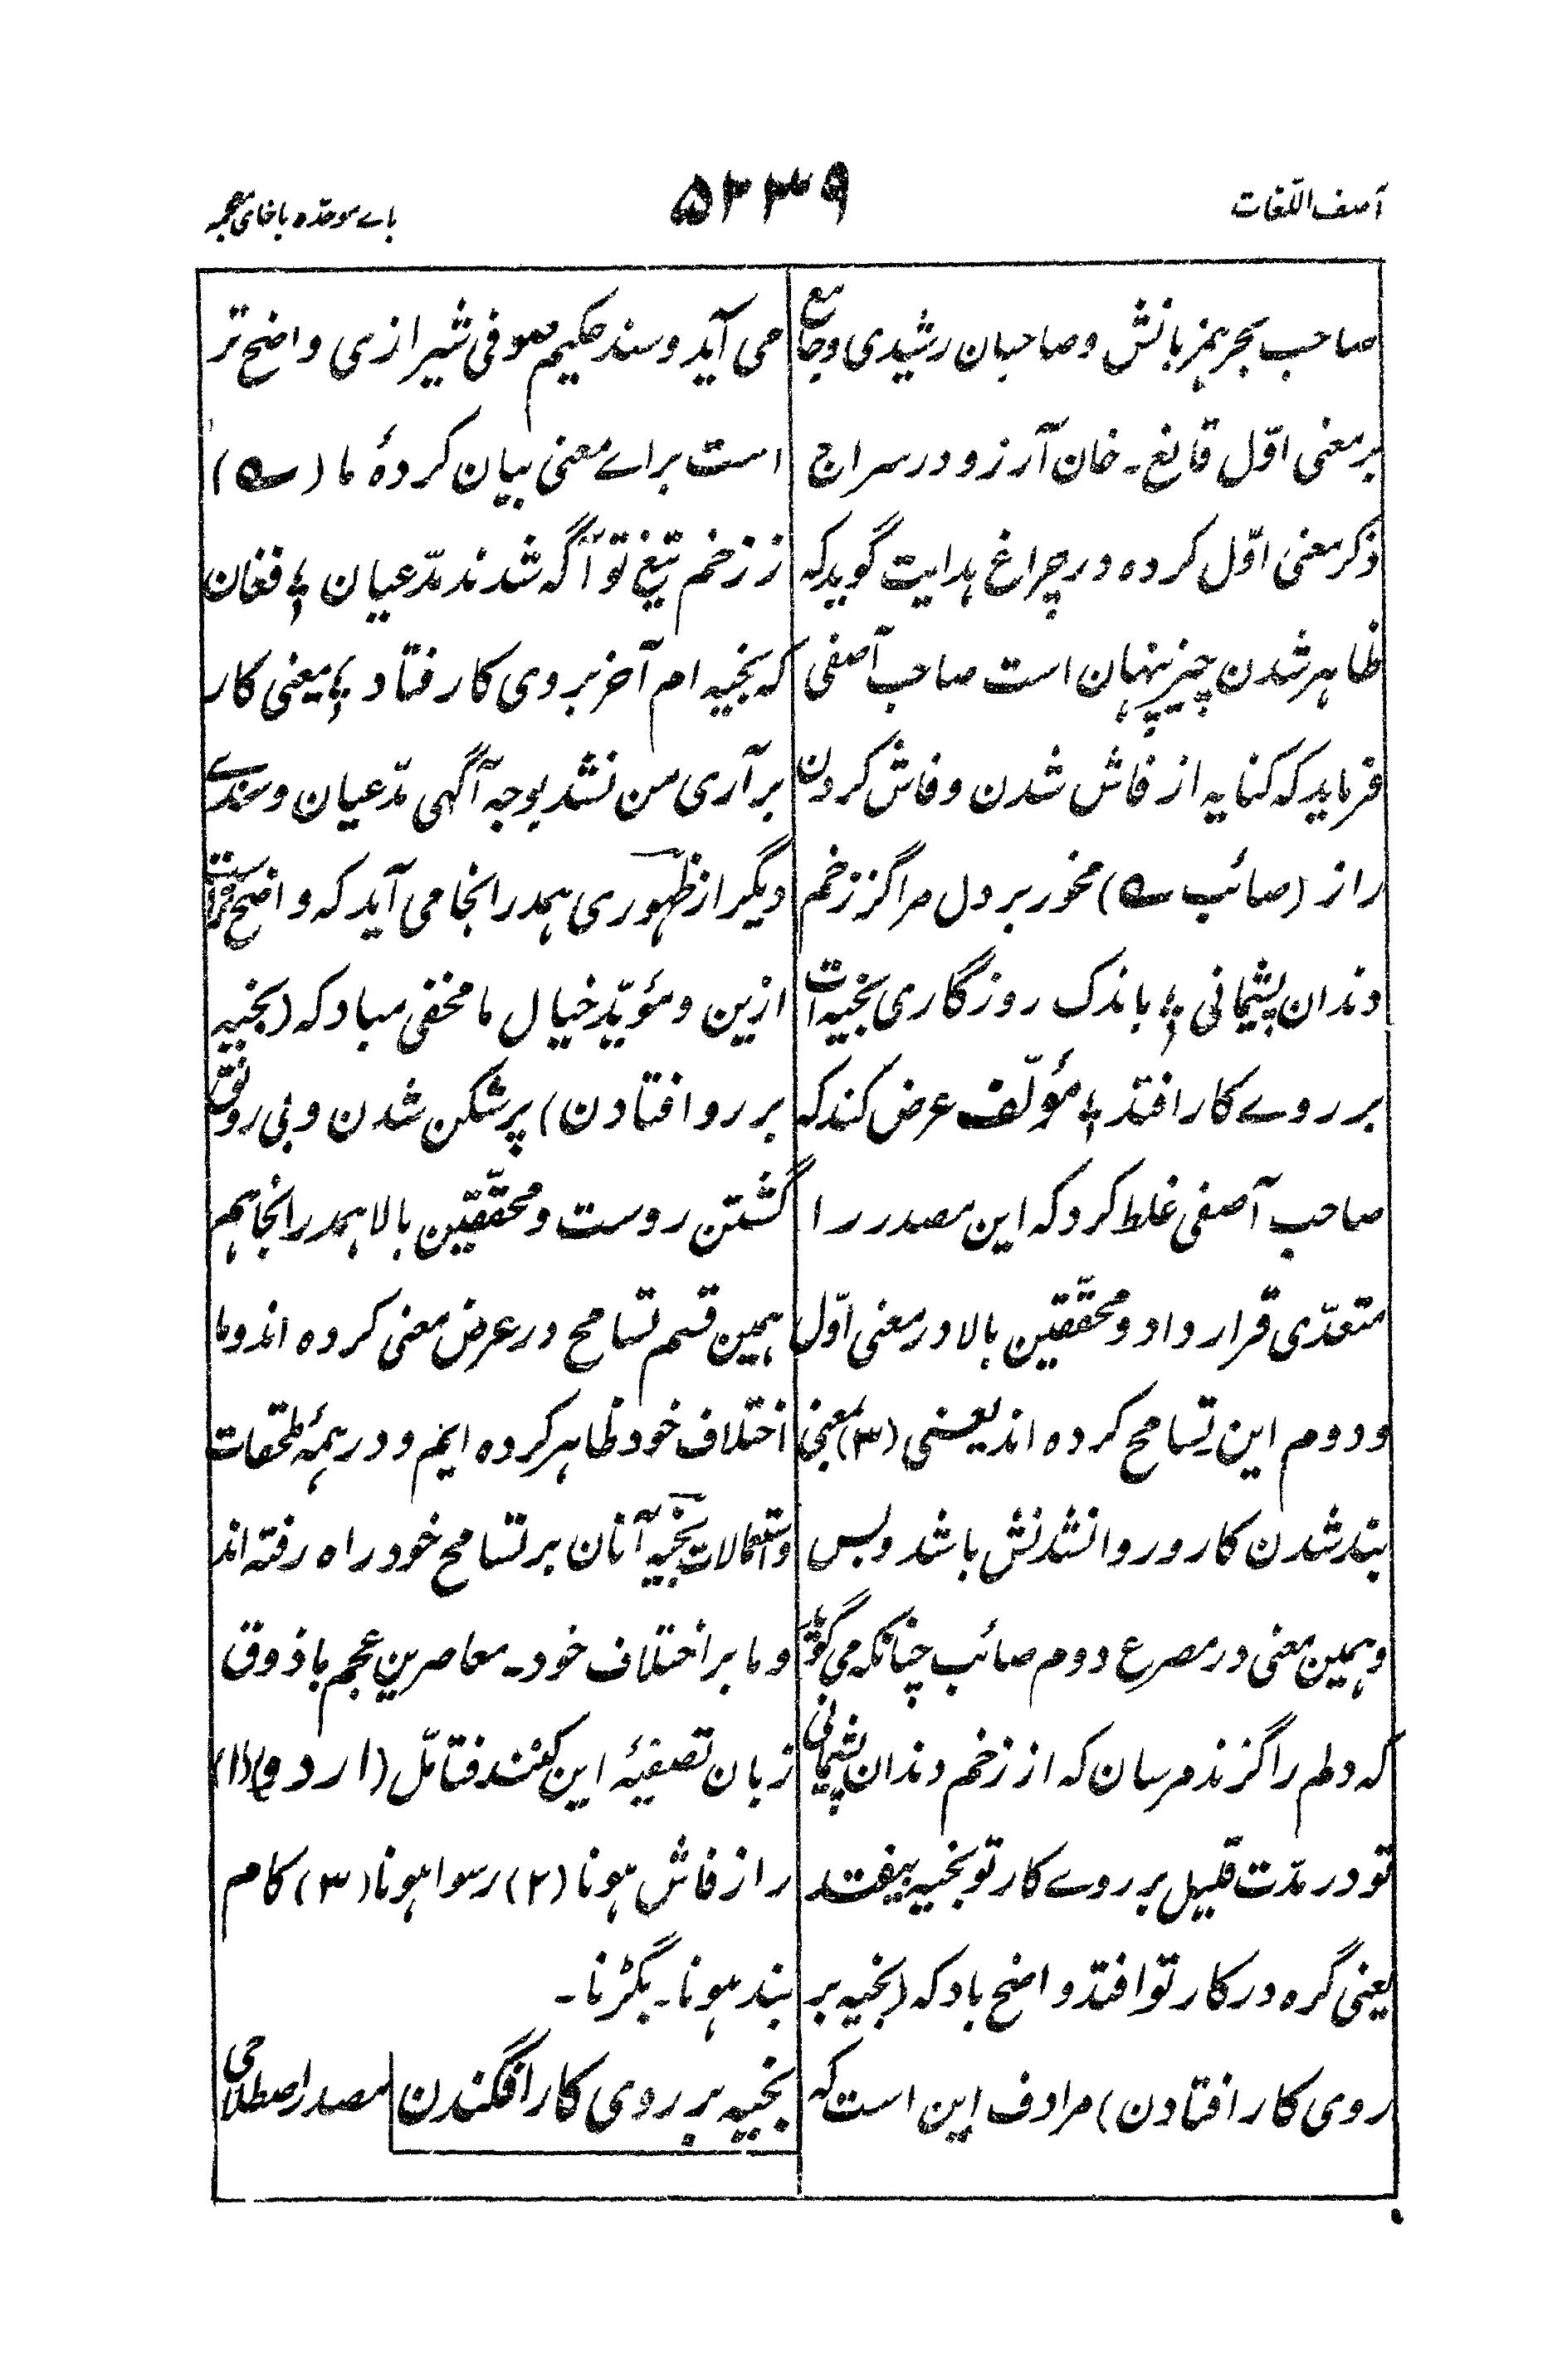 آصف اللّغات
۵۲۳۹
بائے موحدّہ باخای معجمہ
صاحب بحر ہمزبانش و صاحبان رشیدی و جامع
بر معنی اوّل قانع۔ خان آرزو در سراج
ذکر معنیٔ اوّل کردہ در چراغ ہدایت گوید کہ
ظاہر شدن چیز پنہان است صاحب آصفی
فرماید کہ کنایہ از فاش شدن و فاش کردن
راز (صائب ؎) مخور بر دل مرا گز زخم
دندان پشیمانی ؛ باندک روزگاری بخیہ ات
بر روے کار افتد ؛ مؤلّف عرض کند کہ
صاحب آصفی غلط کرد کہ این مصدر را
متعدّی قرار داد و محقّقین بالا در معنی اوّل
و دوم این تسامح کردہ اند یعنی (۳) بمعنی
بند شدن کار و روا نشدنش باشد و بس
و ہمین معنی در مصرع دوم صائب چنانکہ می گوید
کہ دلم را گزند مرسان کہ از زخم دندان پشیمانی
تو در مدّت قلیل بر روے کار تو بخیہ بیفتد
یعنی گرہ در کار تو افتد و اضح باد کہ (بخیہ بر
روی کار افتادن) مرادف این است کہ
می آید و سند حکیم صوفی شیرازی واضح تر
است براے معنی بیان کردۂ ما (؎)
ز زخم تیغ تو آگہ شدند مدّعیان ؛ فغان
کہ بخیہ ام آخر بروی کار فتاد ؛ یعنی کار
برآری من نشد بوجہ آگہی مدّعیان و سندے
دیگر از ظہوری ہمدرانجا می آید کہ واضح تر است
ازین و مؤیّد خیال ما مخفی مباد کہ (بخیہ
بر رو افتادن) پر شکن شدن و بی رونق
گشتن روست و محقّقین بالا ہمدرانجا ہم
ہمین قسم تسامح در عرض معنی کردہ اند و ما
اختلاف خود ظاہر کردہ ایم و در ہمۂ ملحقات
و استعمالات بخیہ آنان بر تسامح خود راہ رفتہ اند
و ما بر اختلاف خود۔ معاصرین عجم با ذوق
زبان تصفیۂ این کنند فتامّل (اردو) (۱)
راز فاش ہونا (۲) رسوا ہونا (۳) کام
بند ہونا۔ بگڑنا۔
بخیہ بر روی کار افگندن مصدر اصطلاحی